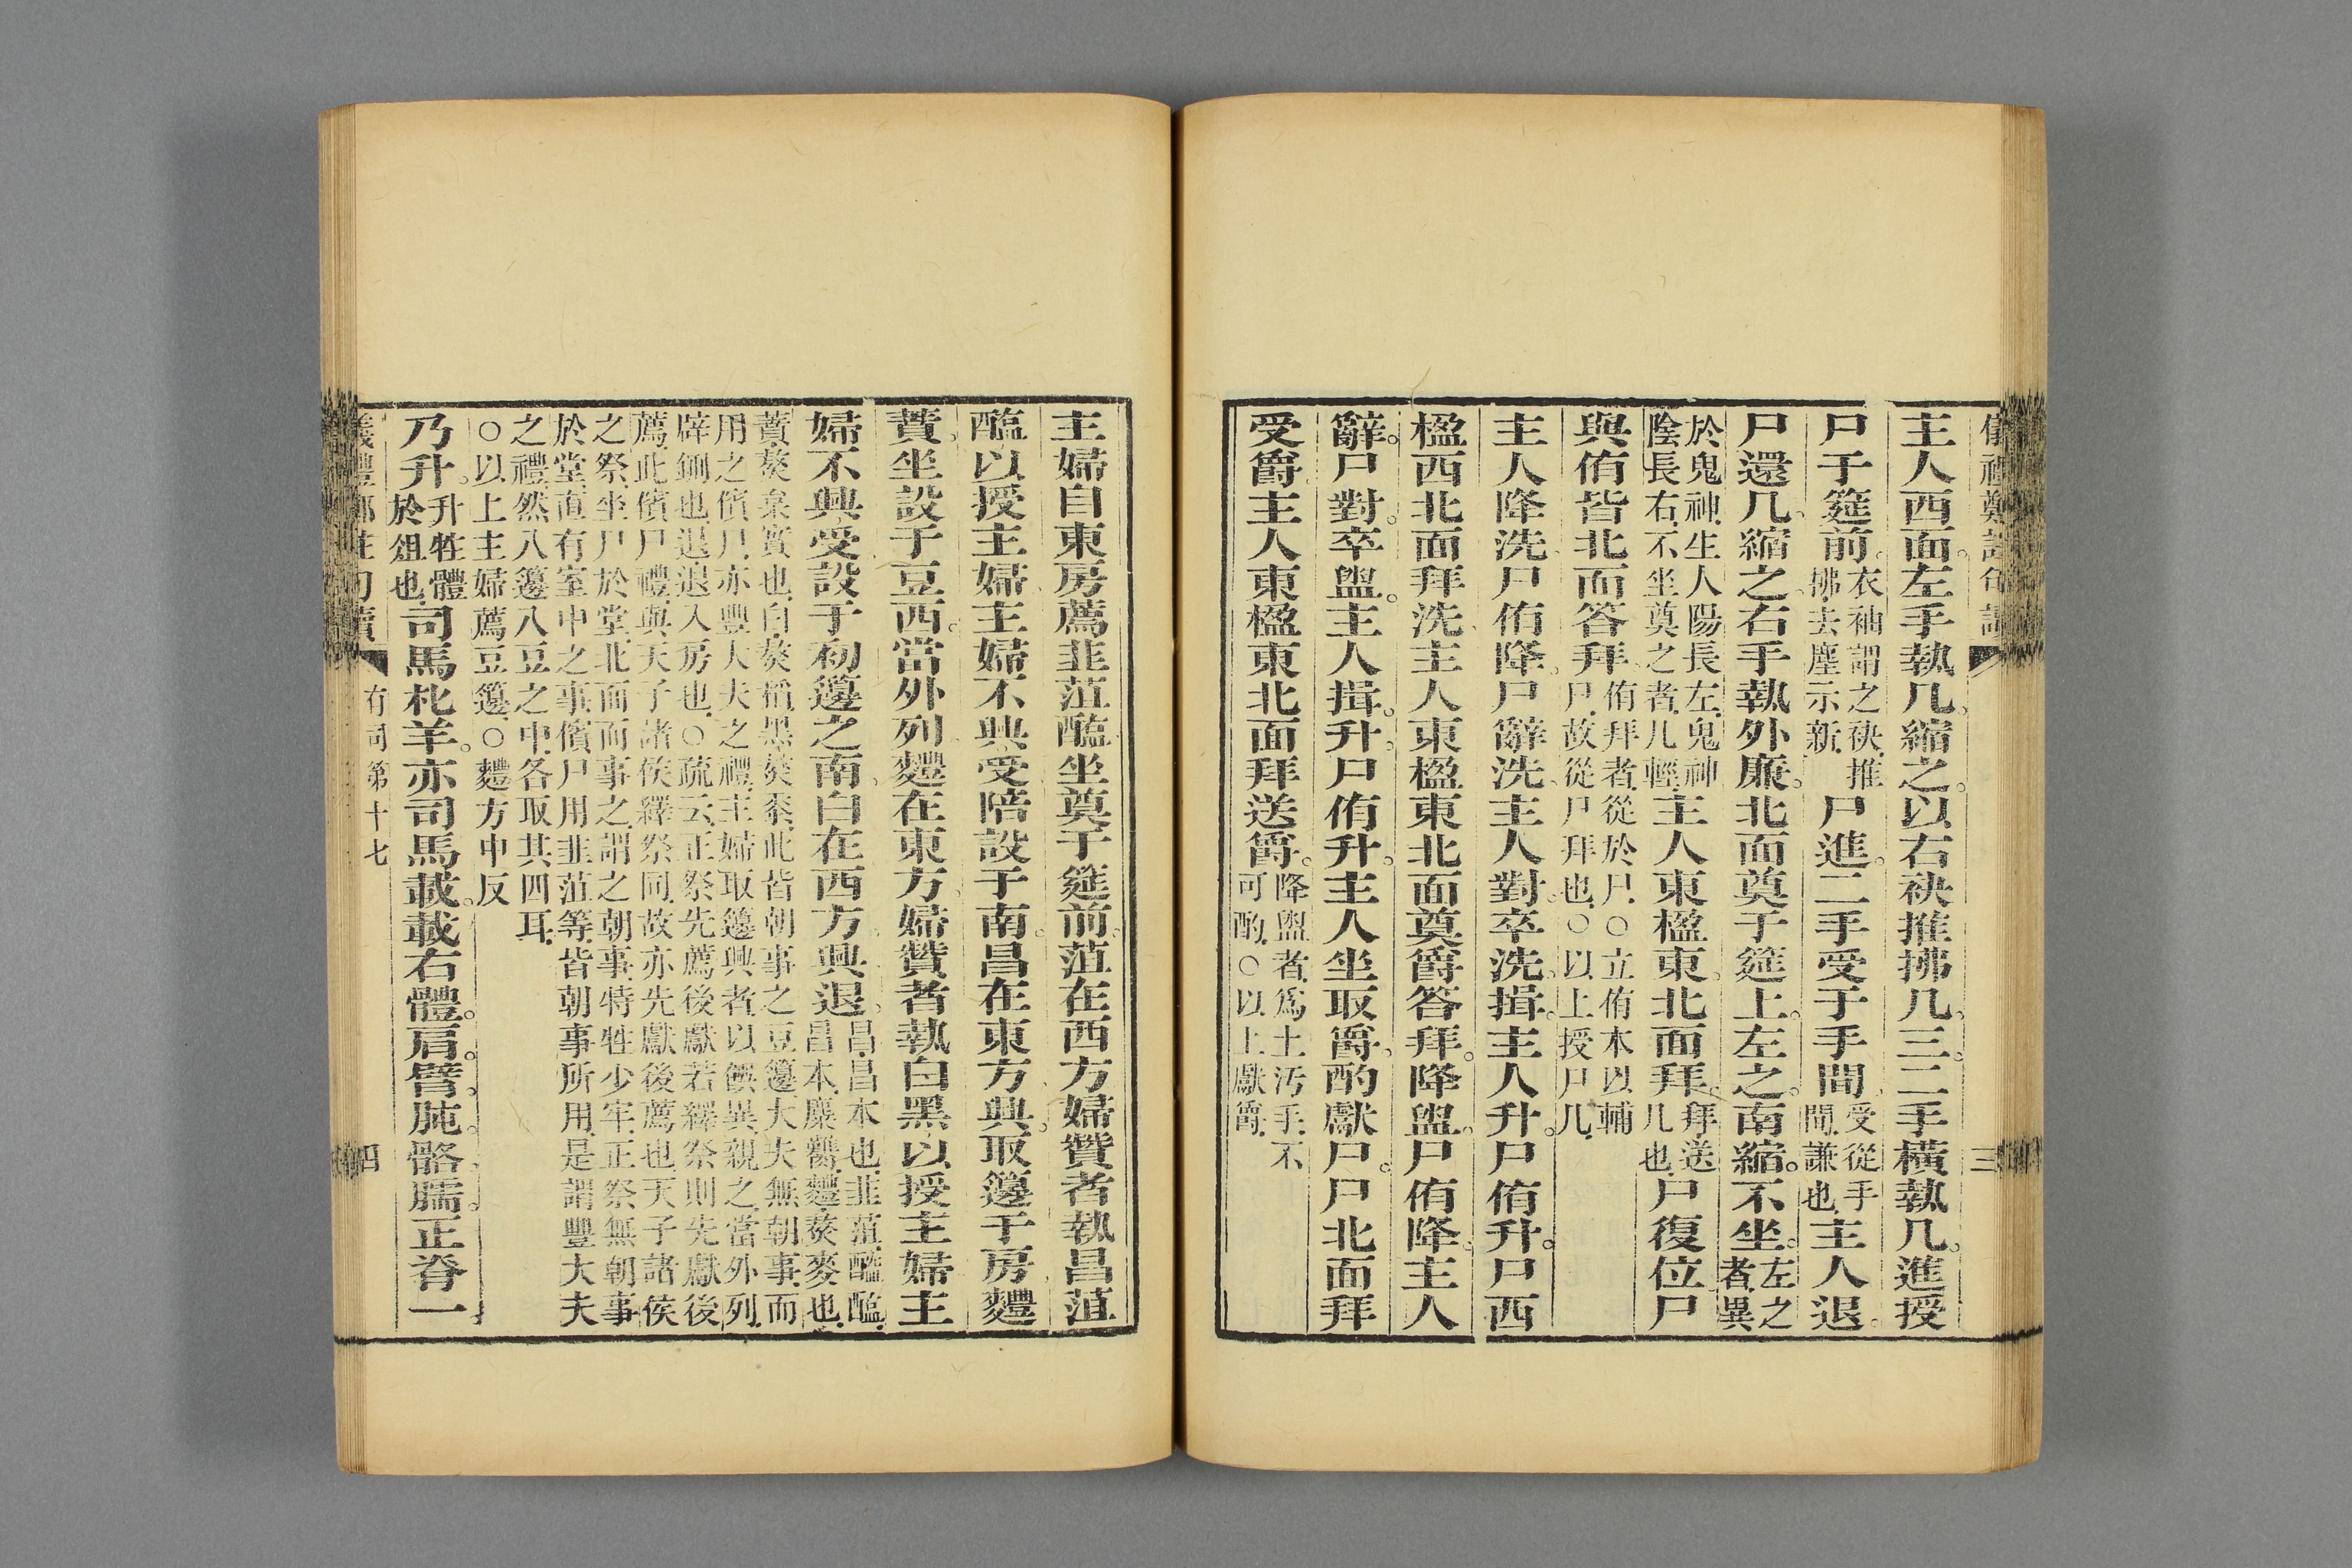 儀禮鄭註句讀 三
主人西面。左手執几。縮之。以右袂推拂几三。二手橫執几。進授
尸于筵前。衣袖謂之袂。推拂去塵示新。尸進。二手受于手間。受從手間謙也。主人退。
尸還几。縮之。右手執外廉。北面奠于筵上。左之。南縮。不坐。左之者異
於鬼神。生人陽長左。鬼神陰長右。不坐奠之者。几輕。主人東楹東。北面拜。拜送几也。尸復位。尸
與侑皆北面答拜。侑拜者。從於尸。○立侑本以輔尸。故從尸拜也。○以上授尸几。
主人降洗。尸侑降。尸辭洗。主人對。卒洗。揖。主人升。尸侑升。尸西
楹西北面拜洗。主人東楹東北面奠爵答拜。降盥。尸侑降。主人
辭。尸對。卒盥。主人揖。升。尸侑升。主人坐取爵。酌獻尸。尸北面拜
受爵。主人東楹東北面拜送爵。降盥者。為土汚手。不可酌。○以上獻爵。
主婦自東房薦韭菹醢。坐奠于筵前。菹在西方。婦贊者執昌菹
醢以授主婦。主婦不興受。陪設于南。昌在東方。興。取籩于房。麷
蕡坐設于豆西。當外列。麷在東方。婦贊者執白黑以授主婦。主
婦不興受。設于初籩之南。白在西方。興退。昌。昌本也。韭菹醓醢。昌本麋臡。麷。熬麥也。
蕡。熬枲實也。白。熬稻。黑。熬黍。此皆朝事之豆籩。大夫無朝事。而
用之儐尸。亦豐大夫之禮。主婦取籩興者。以饌異親之。當外列。
辟鉶也。退。退入房也。○疏云。正祭先薦後獻。若繹祭則先獻後
薦。此儐尸禮與天子諸侯繹祭同。故亦先獻後薦也。天子諸侯
之祭。坐尸於堂。北面而事之。謂之朝事。特牲少牢。正祭無朝事
於堂。直有室中之事。儐尸用韭菹等。皆朝事所用。是謂豐大夫
之禮。然八籩八豆之中。各取其四耳。
○以上主婦薦豆籩。○麷方中反
乃升。升牲體於俎也。司馬朼羊。亦司馬載。載右體。肩。臂。肫。骼。臑。正脊一。
儀禮鄭註句讀 有司第十七 四